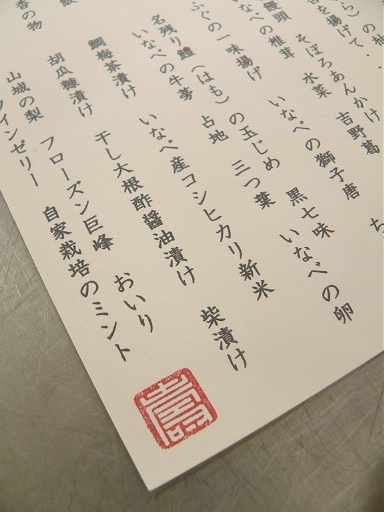 を揚げて 吉野葛
饅頭 そぼろあんかけ
いなべの椎茸 水菜 いなべの獅子唐
ふぐの一味揚げ 黒七味 いなべの卵
名残り鱧(はも)の玉じめ 三つ葉
いなべの牛蒡 占地
いなべ産コシヒカリ新米 柴漬け
鯛梅茶漬け 干し大根酢醤油漬け
胡瓜糠漬け
山城の梨 フローズン巨峰 おいり
ワインゼリー 自家栽培のミント
壽